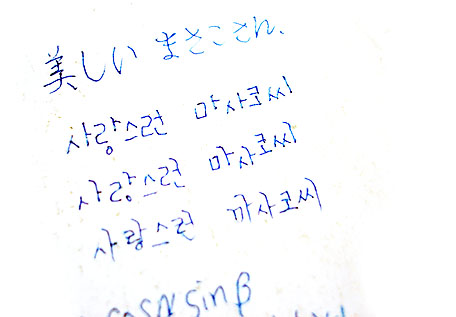 美しい まさこさん、
사랑스런 마사코씨
사랑스런 마사코씨
사랑스런 마사코씨
sinβ